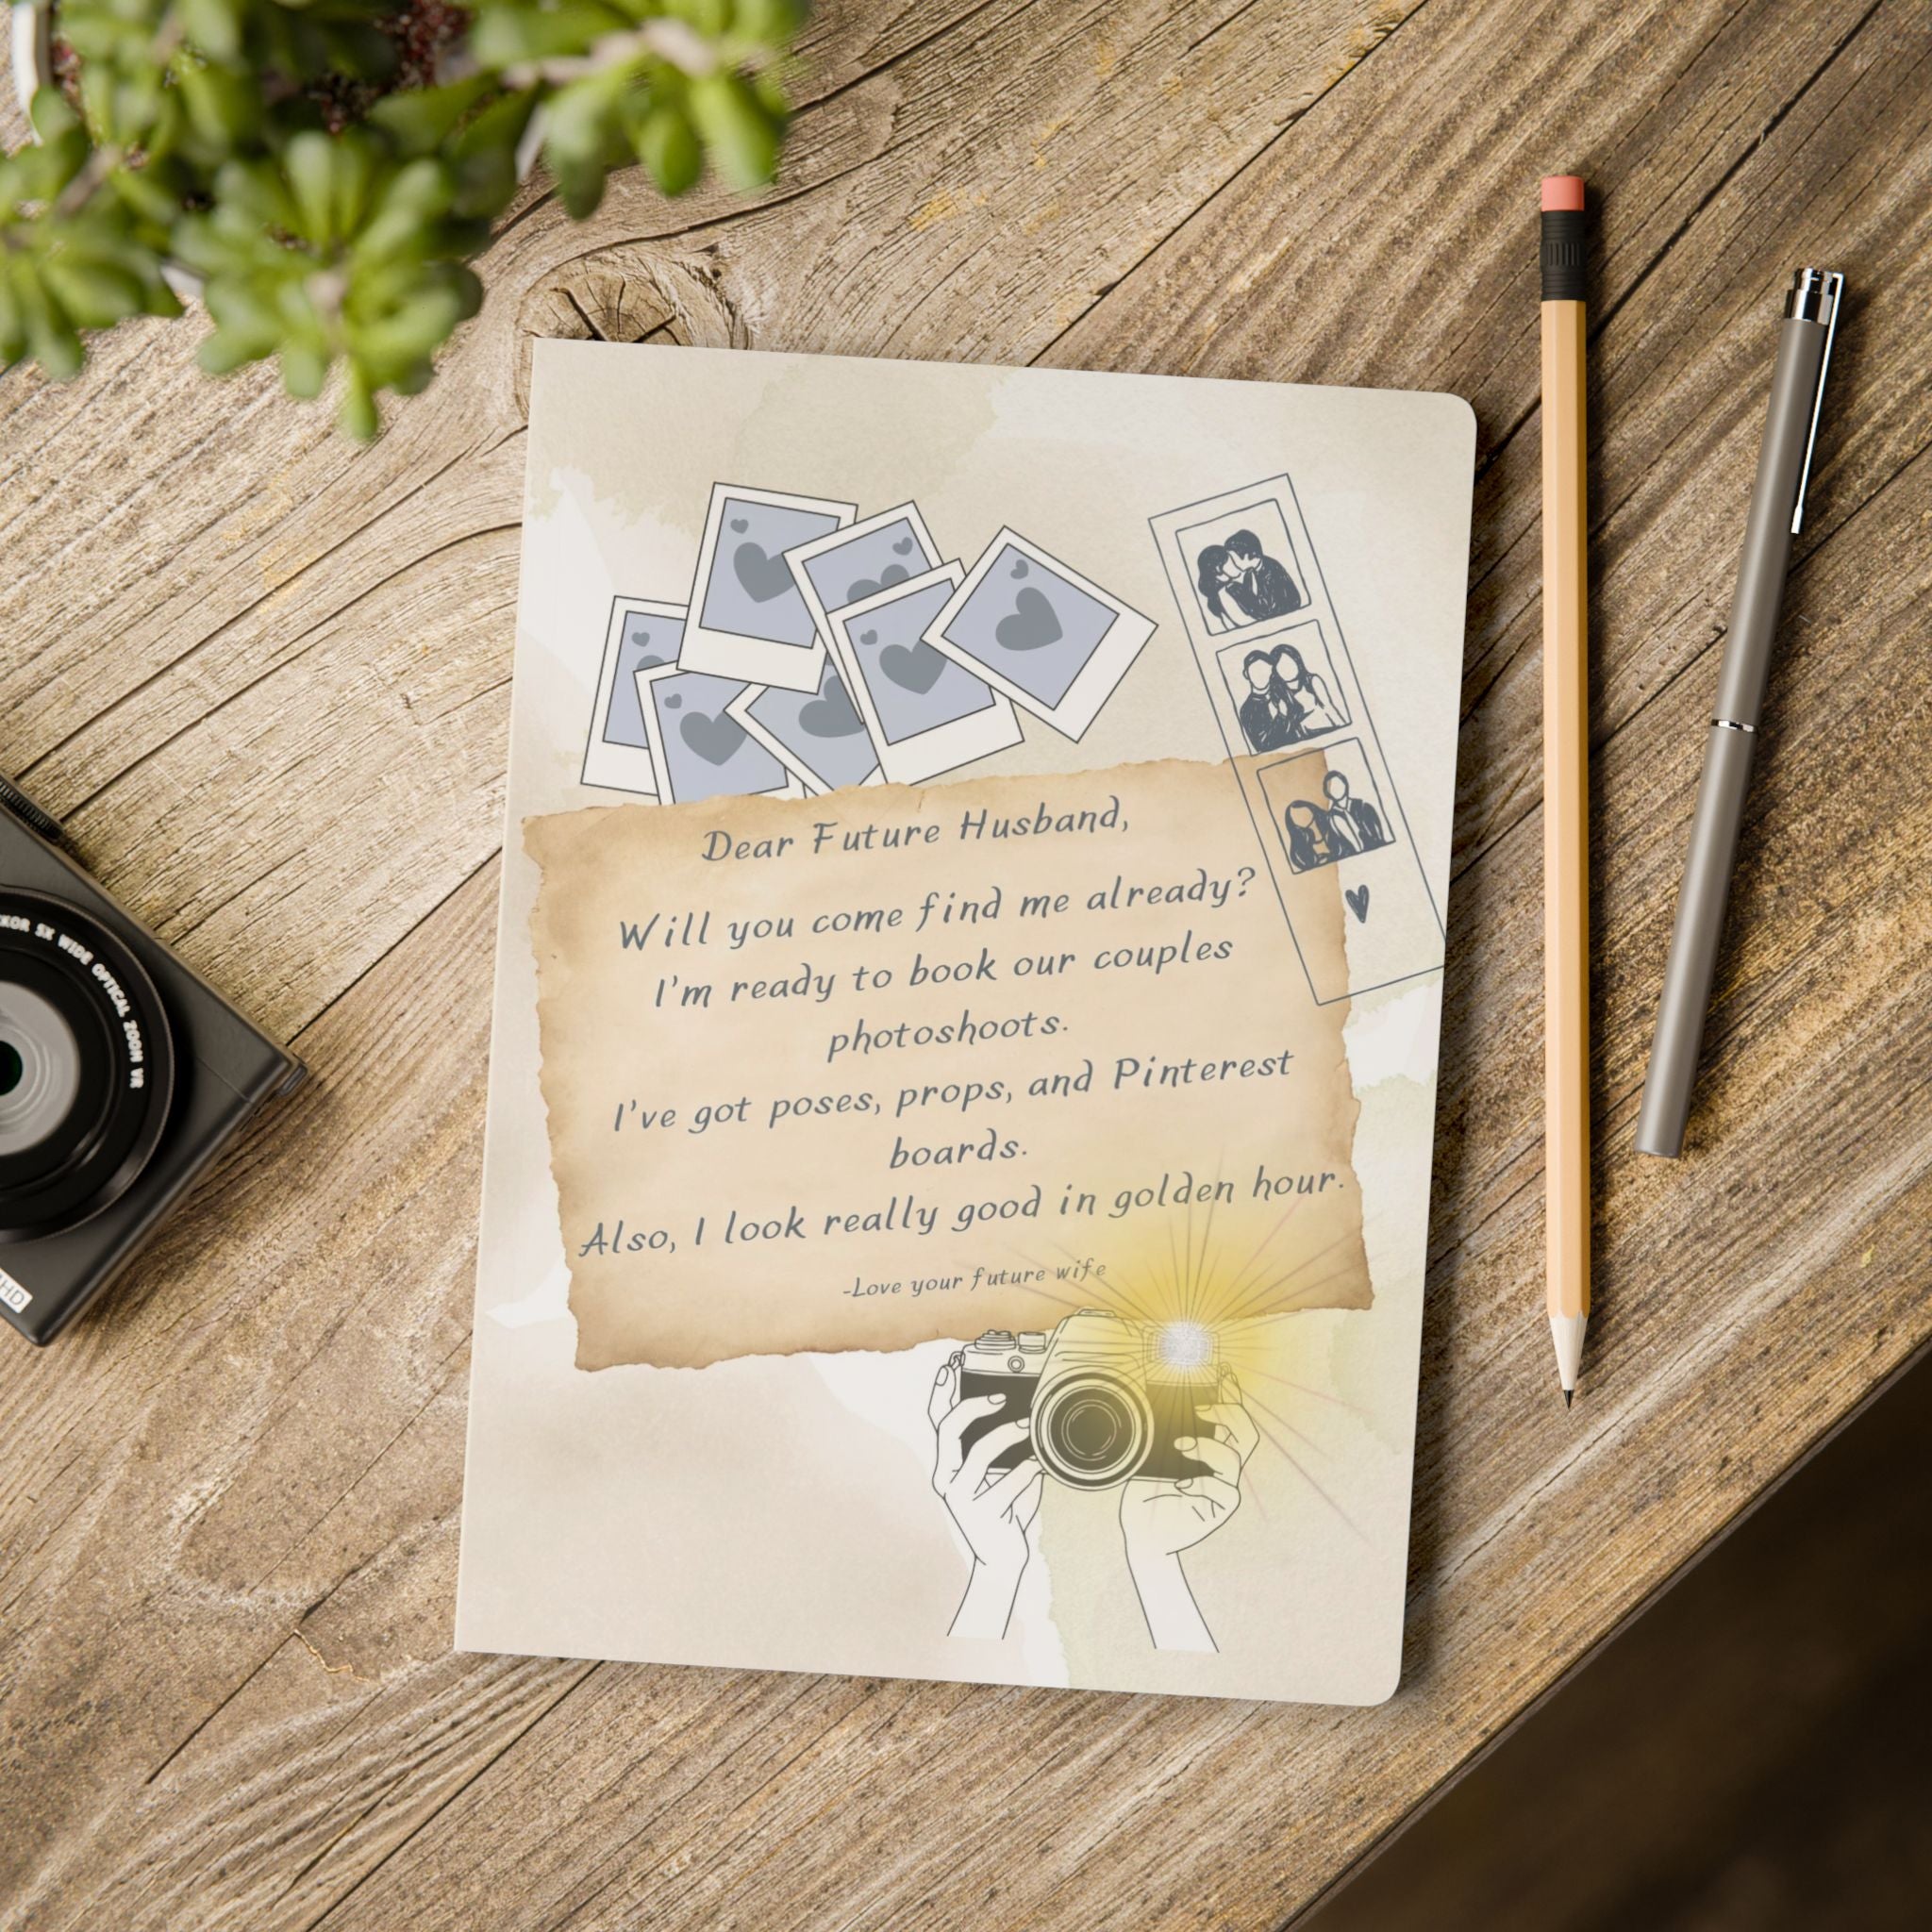 Dear Future Husband,
Will you come find me already?
I'm ready to book our couples
photoshoots.
I've got poses, props, and Pinterest
boards.
Also, I look really good in golden hour.
-Love your future wife
SX WIDE OPTICAL ZOOM VR
HD